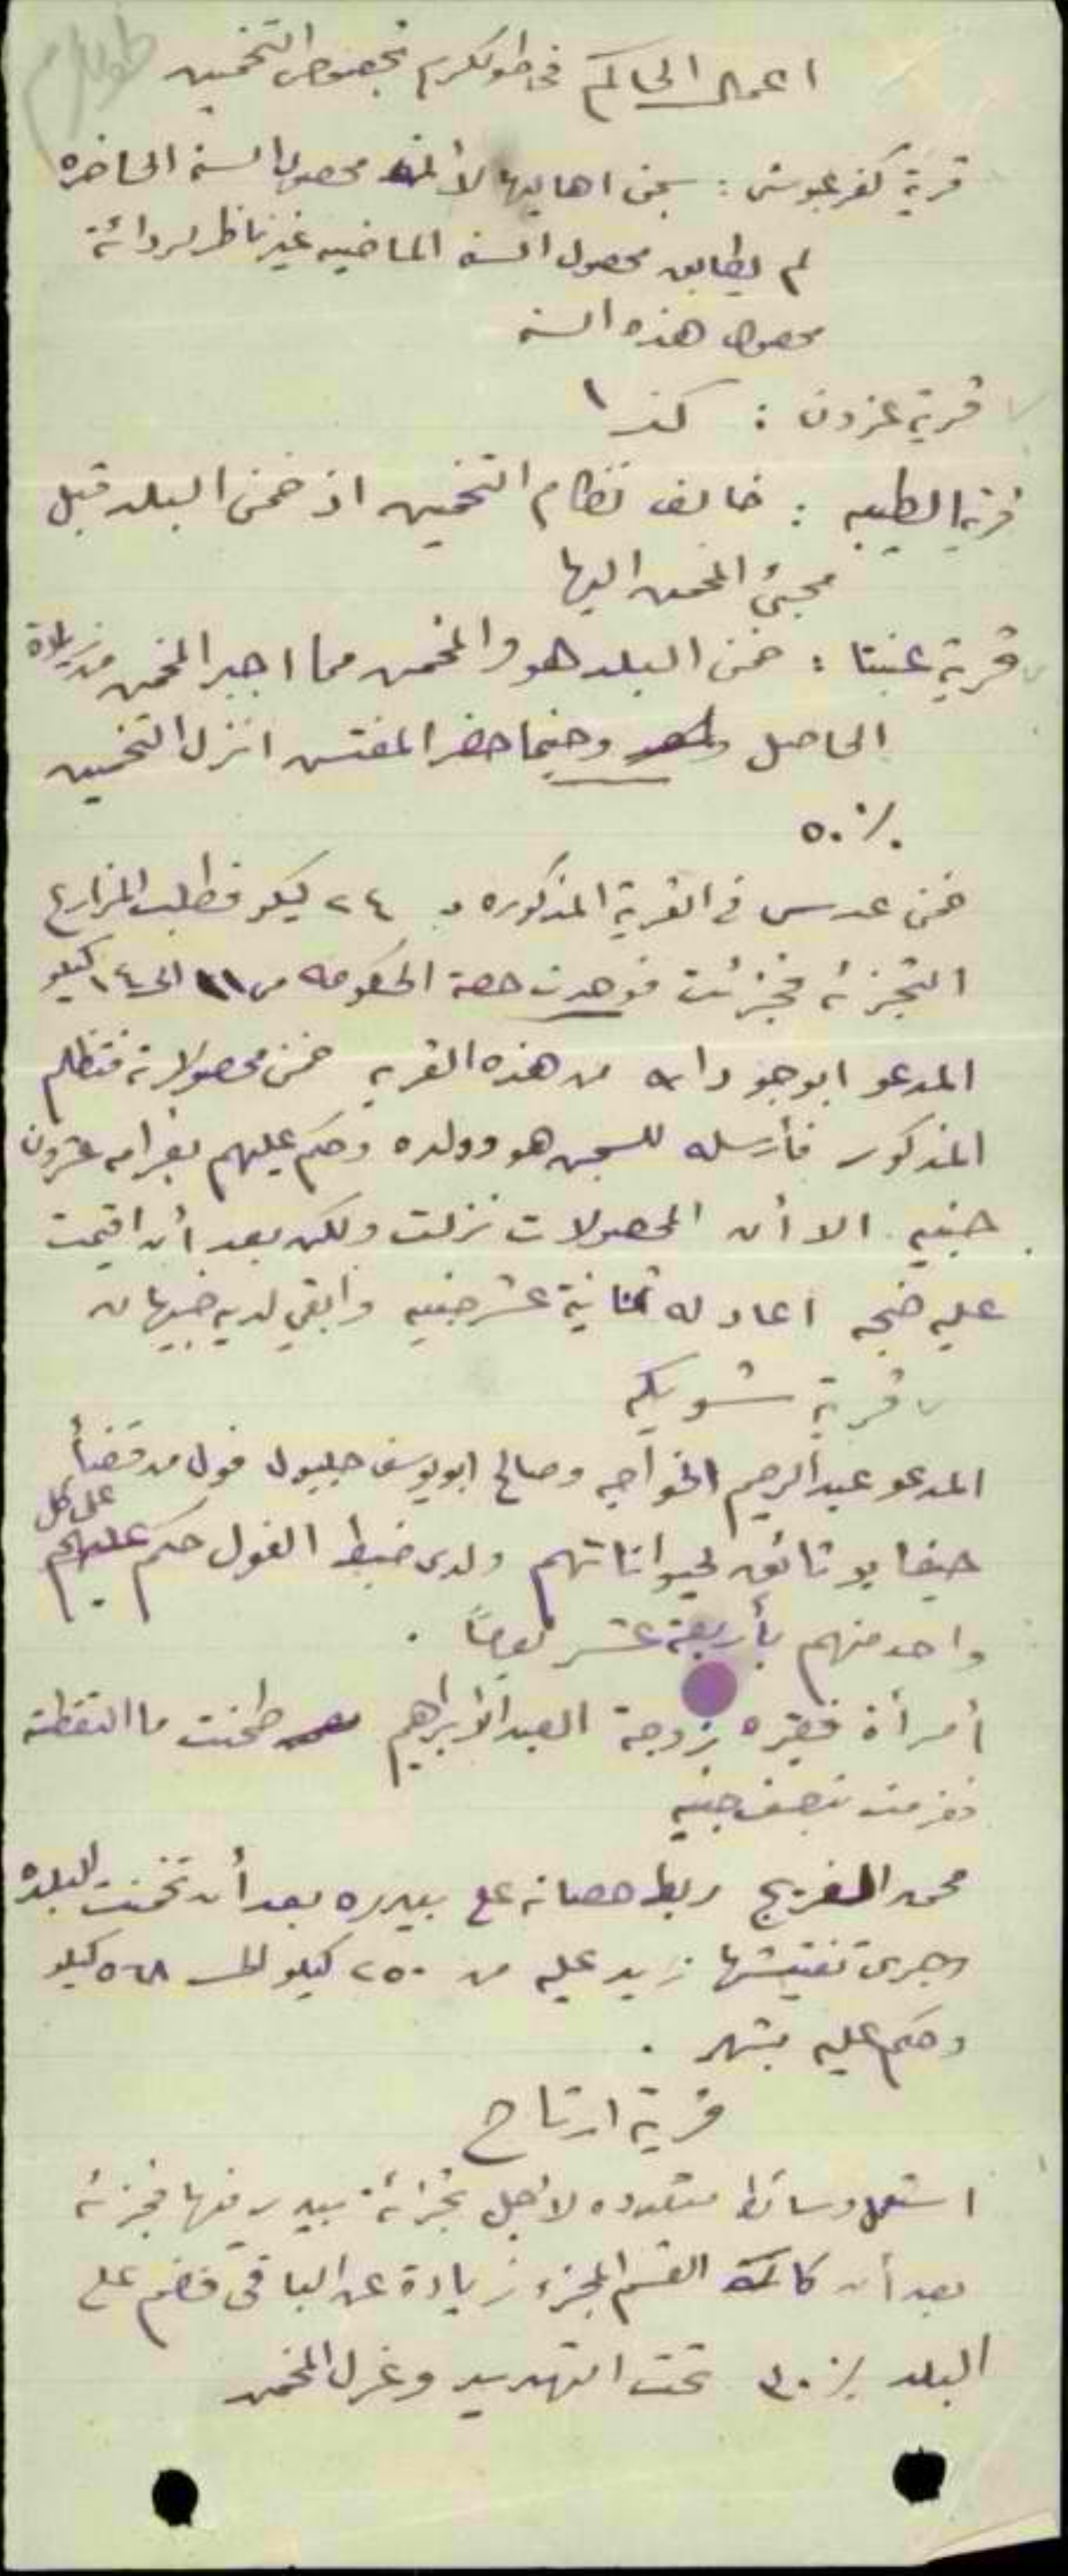 طولكرم
اعمال الحاكم في طولكرم بخصوص التخمين
قرية كفر عبوش : سجن اهاليها لأن محصول السنه الحاضره
لم يطابق محصول السنه الماضيه غير ناظر لردائة
محصول هذه السنه
قرية عزون : كذا
قرية الطيبه : خالف نظام التخمين اذ خمن البلد قبل
مجيئ المخمن اليها
قرية عنبتا : خمن البلد هو والمخمن مما اجبر المخمن من زيادة
الحاصل وحينما حضر المفتش انزل التخمين
٥٠٪
خمن عدس في القرية المذكوره بـ ٢٤ كيلو فطلب المزارع
التجزئه فجزئت فوجدت حصة الحكومه من ١١ الى ١٤ كيلو
المدعو ابو جودانه من هذه القريه خمن محصولاته فتظلم
المذكور فأرسله للسجن هو وولده وحكم عليهم بغرامه عشرون
جنيه الا أن المحصولات نزلت ولكن بعد أن اقيمت
عليه ضجه اعاد له ثمانية عشر جنيه وابقي لديه جنيهان
قرية شويكه
المدعو عبد الرحيم الخواجه وصالح ابو يوسف جلبوا فول من قضأ
حيفا بوثائق لحيواناتهم ولدى ضبط الفول حكم على كل
واحد منهم بأربعة عشر يوماً .
أمرأة فقيره زوجة العبد الابراهيم طحنت ما التقطته
فغرمت بنصف جنيه
محمد المفريج ربط حصانه على بيدره بعد أن تخمنت البلده
وجرى تفتيشها زيد عليه من ٢٥٠ كيلو الى ٥٦٨ كيلو
وحكم عليه بشهر .
قرية ارتاح
استعمل وسائط متعدده لأجل تجزئة بيدر فيها فجزئه
بعد أن كانت القسم المجزء زيادة عن الباقي فضم على
البلد ٣٠٪ تحت التهديد وعزل المخمن